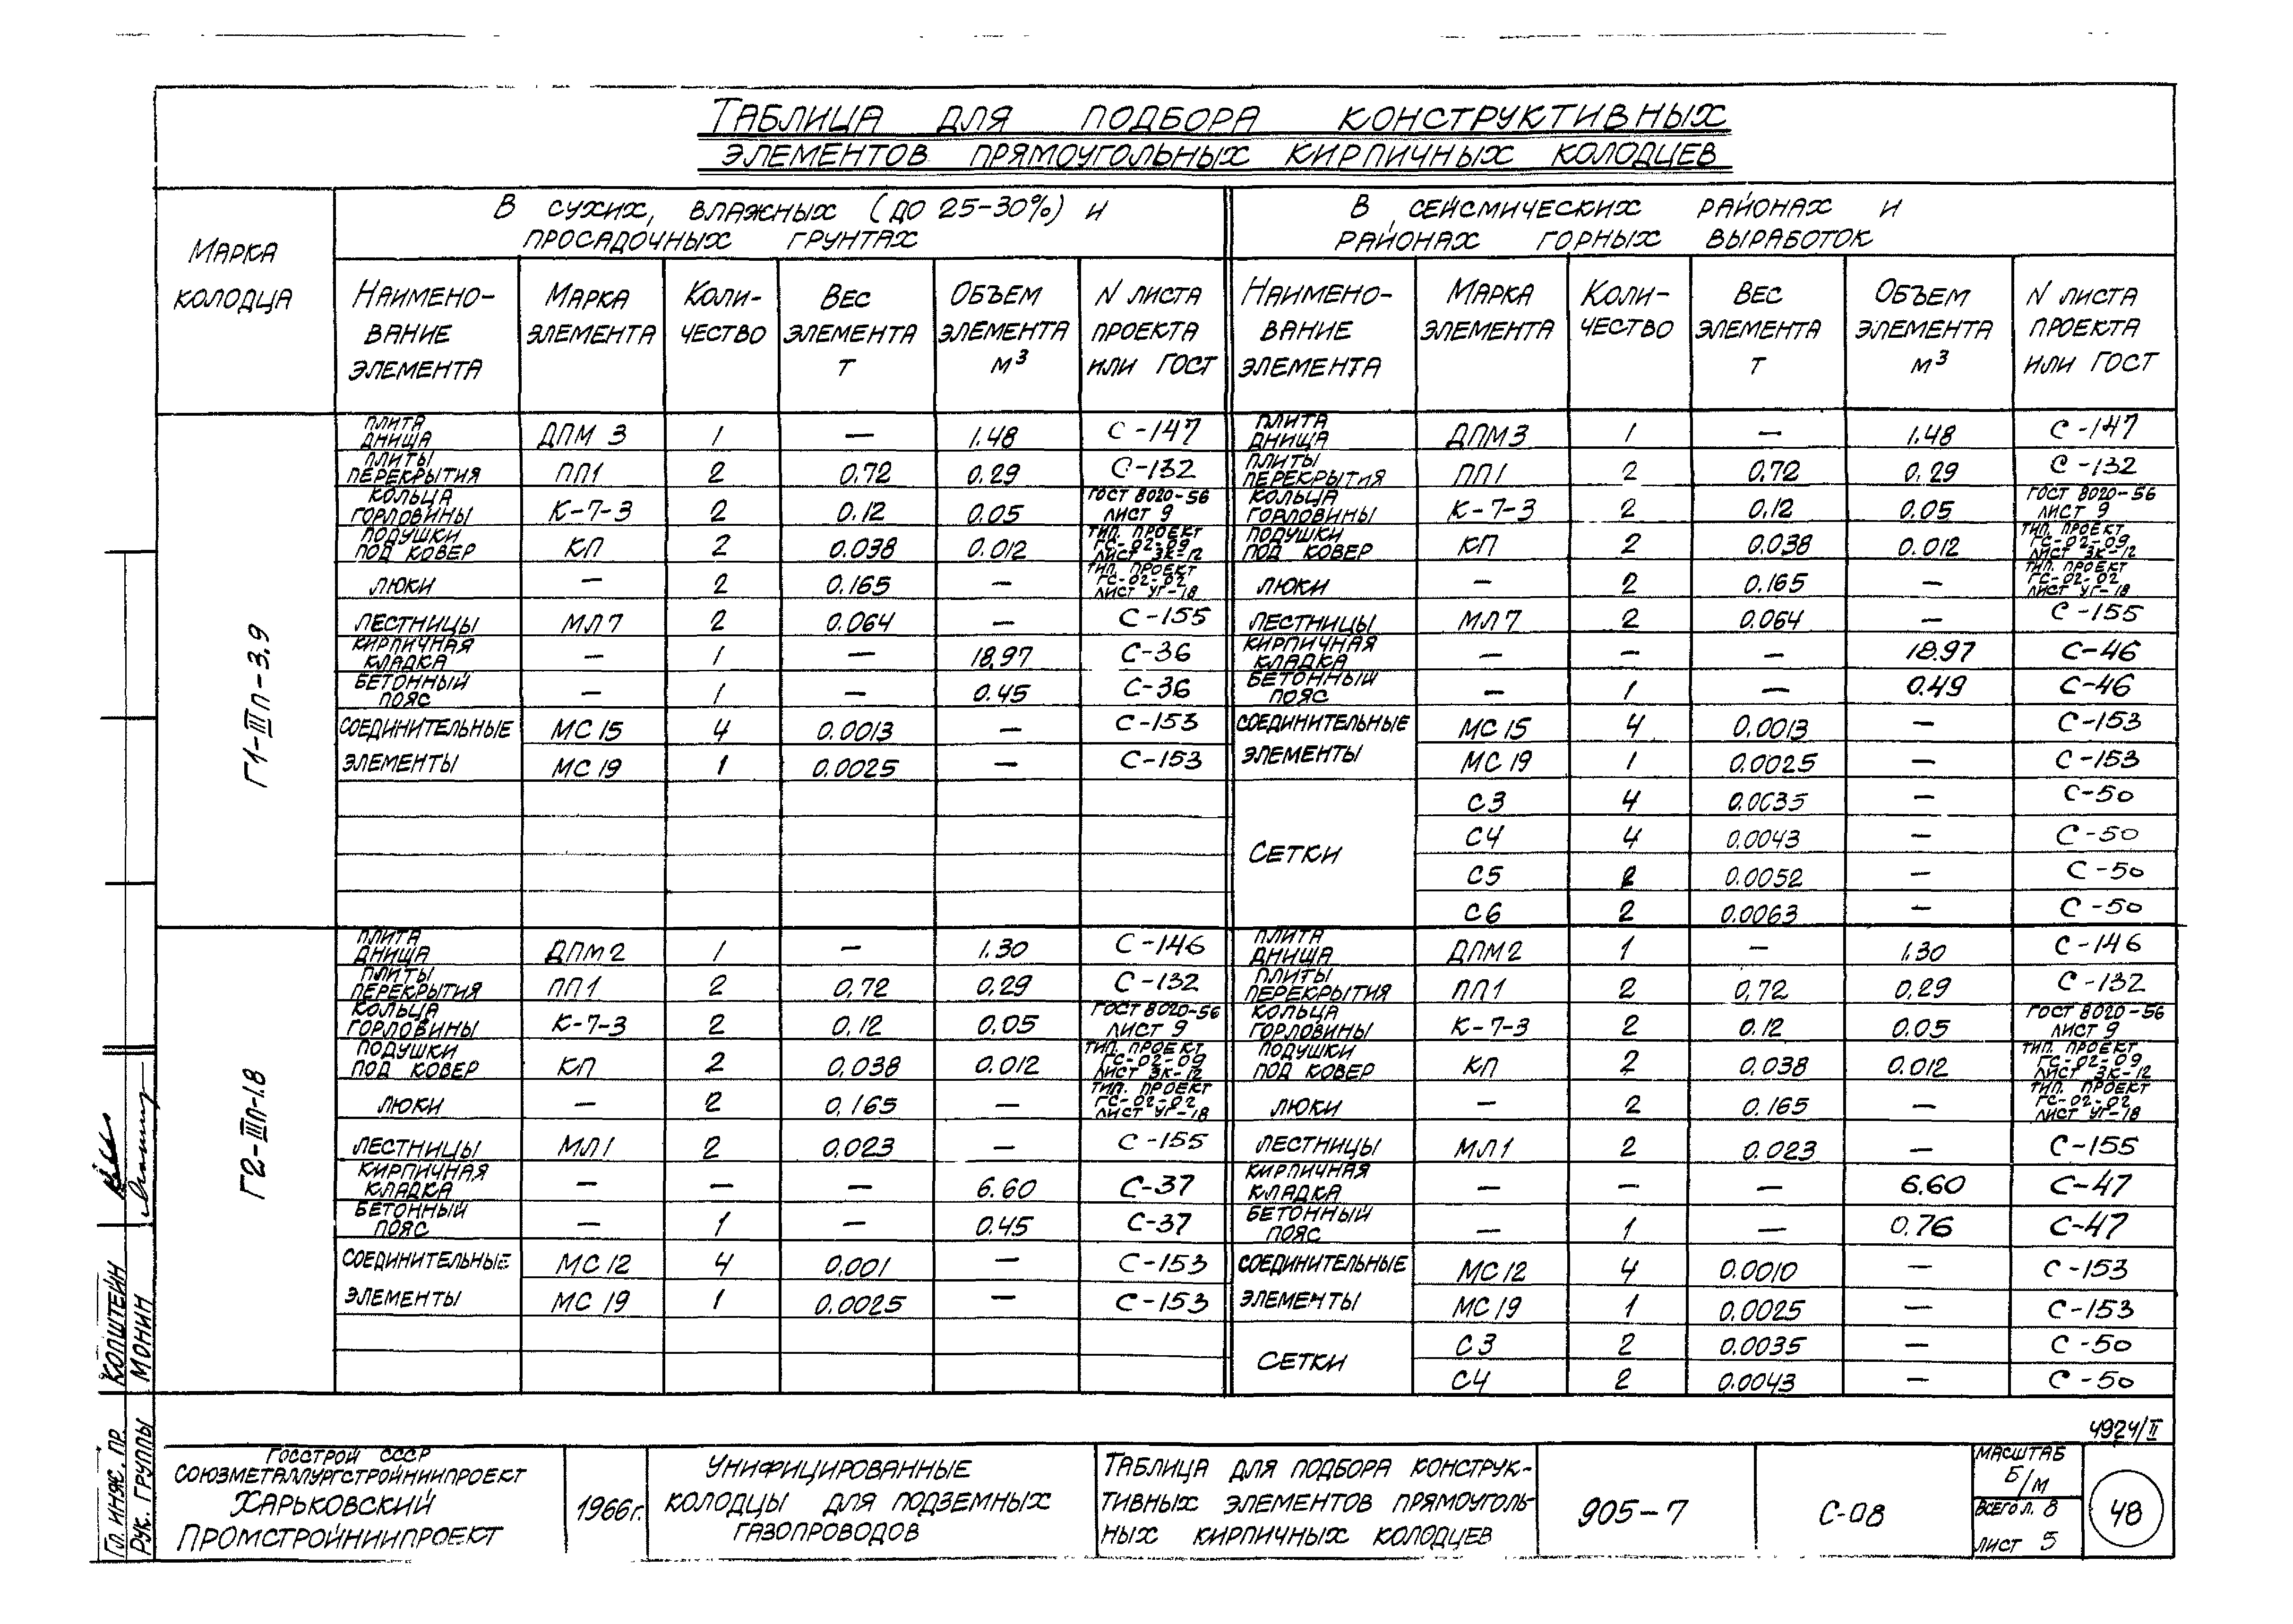 Таблица для подбора конструктивных
элементов прямоугольных кирпичных колодцев
Марка колодца
В сухих, влажных (до 25-30%) и
просадочных грунтах
В сейсмических районах и
районах горных выработок
Наимено-вание элемента | Марка элемента | Коли-чество | Вес элемента т | Объем элемента м³ | N листа проекта или ГОСТ | Наимено-вание элемента | Марка элемента | Коли-чество | Вес элемента т | Объем элемента м³ | N листа проекта или ГОСТ
Г1-IIIп-3,9
Плита днища | ДПМ 3 | 1 | — | 1.48 | С-147 | Плита днища | ДПМ3 | 1 | — | 1.48 | С-147
Плиты перекрытия | ПП1 | 2 | 0,72 | 0.29 | С-132 | Плиты перекрытия | ПП1 | 2 | 0,72 | 0.29 | С-132
Кольца горловины | К-7-3 | 2 | 0.12 | 0.05 | ГОСТ 8020-56 лист 9 | Кольца горловины | К-7-3 | 2 | 0.12 | 0.05 | ГОСТ 8020-56 лист 9
Подушки под ковер | КП | 2 | 0.038 | 0.012 | Тип. проект ГС-02-09 лист ЗК-12 | Подушки под ковер | КП | 2 | 0.038 | 0.012 | Тип. проект ГС-02-09 лист ЗК-12
Люки | — | 2 | 0.165 | — | Тип. проект ГС-02-02 лист УГ-18 | Люки | — | 2 | 0.165 | — | Тип. проект ГС-02-02 лист УГ-18
Лестницы | МЛ7 | 2 | 0.064 | — | С-155 | Лестницы | МЛ7 | 2 | 0.064 | — | С-155
Кирпичная кладка | — | 1 | — | 18.97 | С-36 | Кирпичная кладка | — | — | — | 18.97 | С-46
Бетонный пояс | — | 1 | — | 0.45 | С-36 | Бетонный пояс | — | 1 | — | 0.49 | С-46
Соединительные | МС15 | 4 | 0.0013 | — | С-153 | Соединительные | МС15 | 4 | 0.0013 | — | С-153
элементы | МС19 | 1 | 0.0025 | — | С-153 | элементы | МС19 | 1 | 0.0025 | — | С-153
Сетки
С3 | 4 | 0.0035 | — | С-50
С4 | 4 | 0.0043 | — | С-50
С5 | 2 | 0.0052 | — | С-50
С6 | 2 | 0.0063 | — | С-50
Г2-IIIп-1.8
Плита днища | ДПМ2 | 1 | — | 1.30 | С-146 | Плита днища | ДПМ2 | 1 | — | 1.30 | С-146
Плиты перекрытия | ПП1 | 2 | 0,72 | 0,29 | С-132 | Плиты перекрытия | ПП1 | 2 | 0,72 | 0.29 | С-132
Кольца горловины | К-7-3 | 2 | 0,12 | 0.05 | ГОСТ 8020-56 лист 9 | Кольца горловины | К-7-3 | 2 | 0.12 | 0.05 | ГОСТ 8020-56 лист 9
Подушки под ковер | КП | 2 | 0,038 | 0.012 | Тип. проект ГС-02-09 лист ЗК-12 | Подушки под ковер | КП | 2 | 0.038 | 0.012 | Тип. проект ГС-02-09 лист ЗК-12
Люки | — | 2 | 0,165 | — | Тип. проект ГС-02-02 лист УГ-18 | Люки | — | 2 | 0.165 | — | Тип. проект ГС-02-02 лист УГ-18
Лестницы | МЛ1 | 2 | 0.023 | — | С-155 | Лестницы | МЛ1 | 2 | 0.023 | — | С-155
Кирпичная кладка | — | — | — | 6.60 | С-37 | Кирпичная кладка | — | — | — | 6.60 | С-47
Бетонный пояс | — | 1 | — | 0.45 | С-37 | Бетонный пояс | — | 1 | — | 0.76 | С-47
Соединительные | МС12 | 4 | 0,001 | — | С-153 | Соединительные | МС12 | 4 | 0.0010 | — | С-153
элементы | МС19 | 1 | 0.0025 | — | С-153 | элементы | МС19 | 1 | 0.0025 | — | С-153
Сетки
С3 | 2 | 0.0035 | — | С-50
С4 | 2 | 0.0043 | — | С-50
Гл. инж. пр. Колштейн
Рук. группы Монин
4924/II
Госстрой СССР
Союзметаллургстройниипроект
Харьковский
Промстройниипроект
1966г.
Унифицированные
колодцы для подземных
газопроводов
Таблица для подбора конструк-
тивных элементов прямоуголь-
ных кирпичных колодцев
905-7
С-08
Масштаб
Б/м
Всего л. 8
лист 5
48